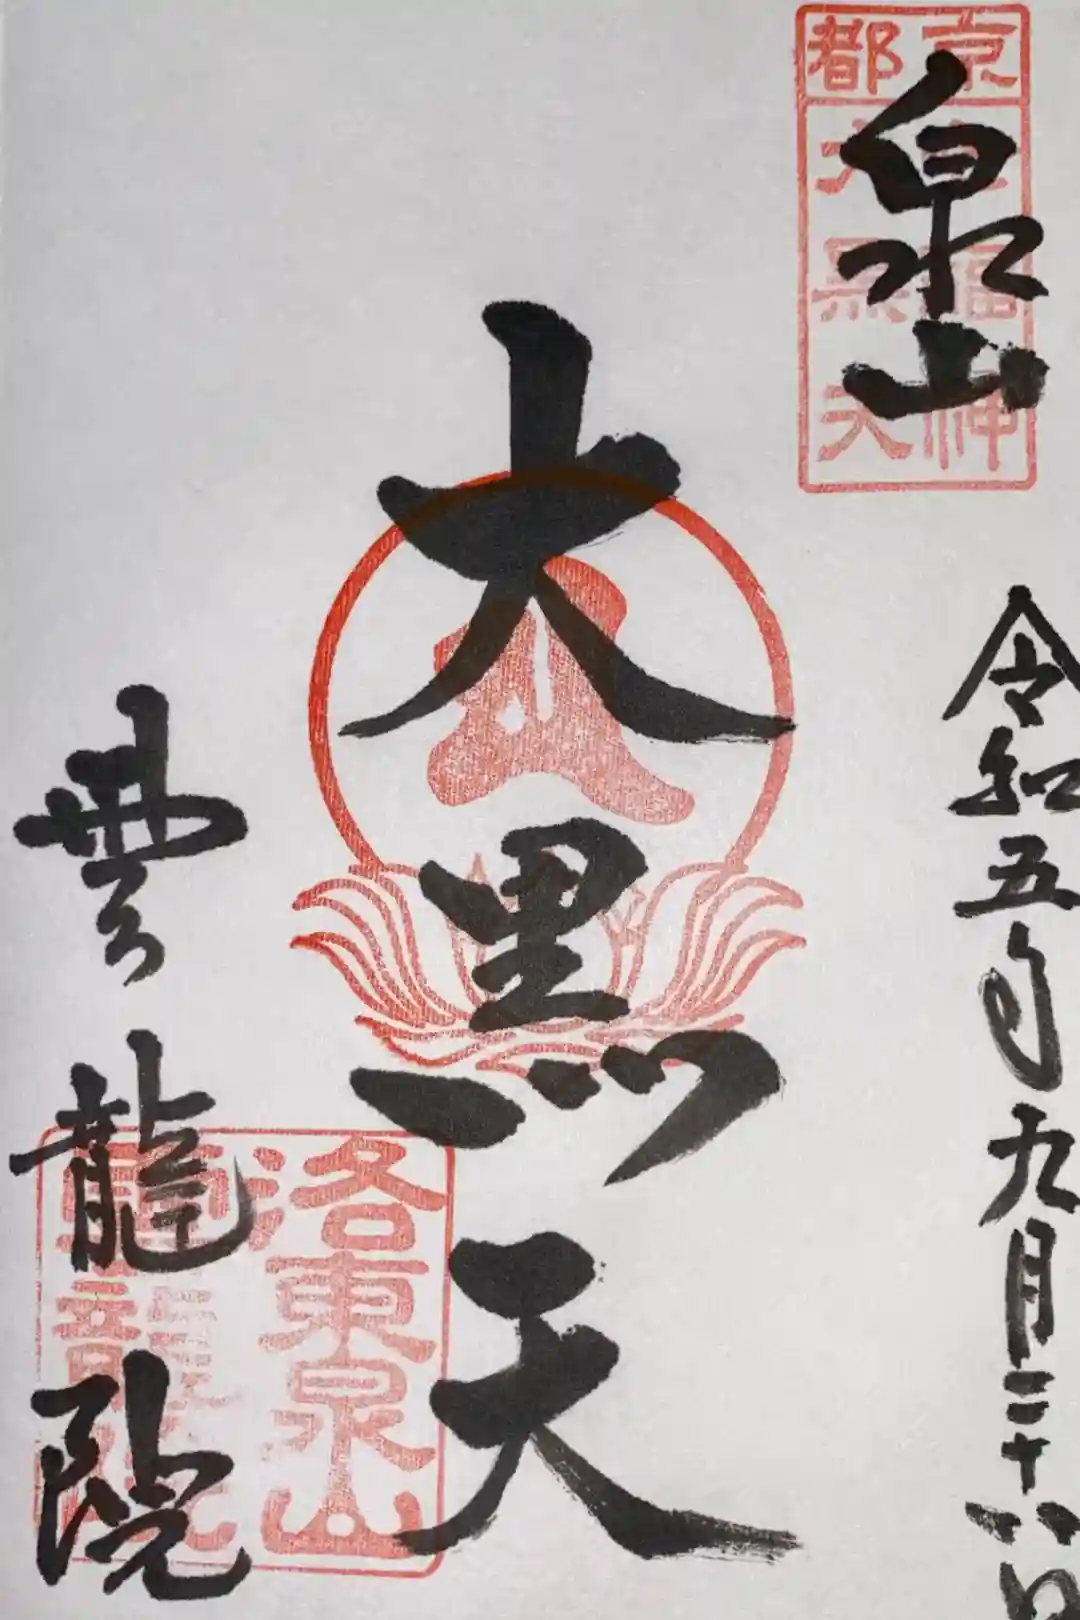 泉山
京都
七福神
大黒天
令和五年九月二十八日
大黒天
雲龍院
洛東泉山
雲龍院